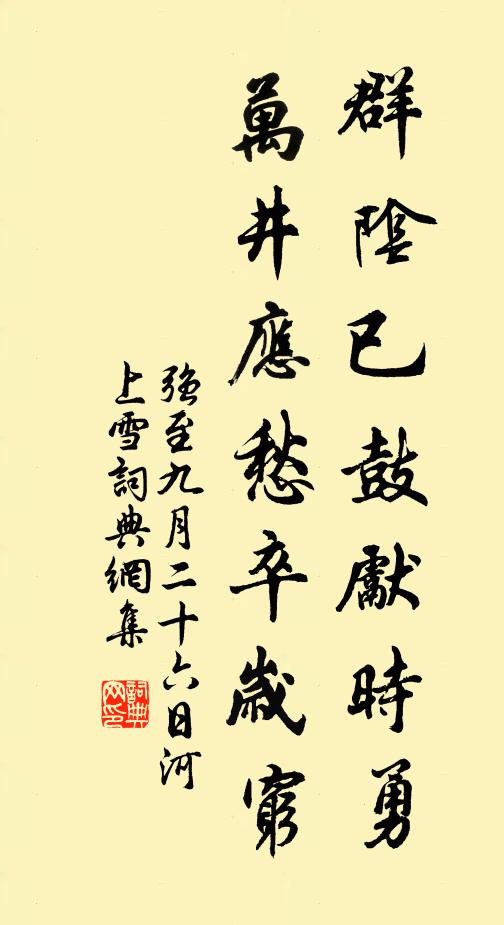 群陰已鼓獻時勇
萬井應愁卒歲窮
強至九月二十六日河
上雪詞典網集
詞典
网印